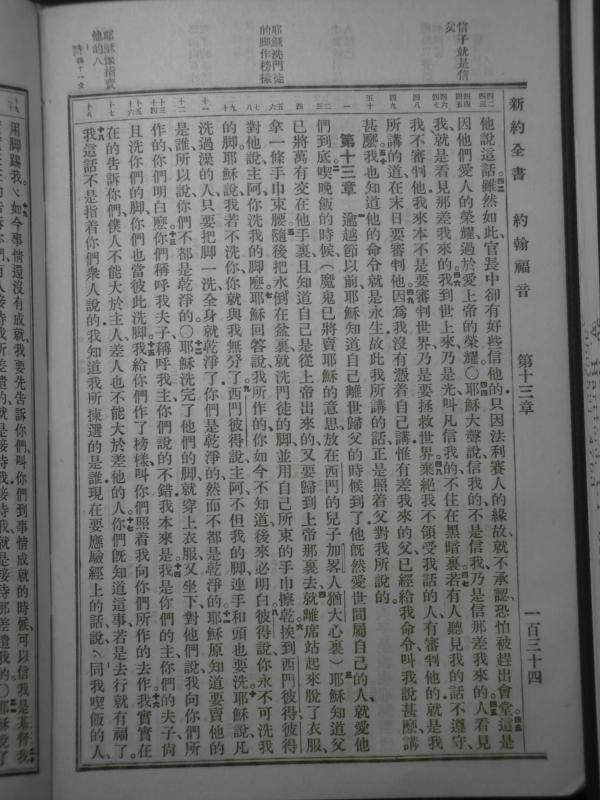 新約全書　約翰福音　第十三章　一百三十四
信子就是信父
耶穌洗門徒的脚作榜樣
耶穌依指賣他的人
他說這話雖然如此官長中卻有好些信他的只因法利賽人的緣故就不承認恐怕被趕出會堂這是
因他們愛人的榮耀過於愛上帝的榮耀〇耶穌大聲說信我的不是信我乃是信那差我來的人看見
我就是看見那差我來的我到世上來乃是光叫凡信我的不住在黑暗裏若有人聽見我的話不遵守
我不審判他我來本不是要審判世界乃是要拯救世界棄絕我不領受我話的人有審判他的就是我
所講的道在末日要審判他因爲我沒有憑着自己講惟有差我來的父已經給我命令叫我說甚麼講
甚麼我也知道他的命令就是永生故此我所講的話正是照着父對我所說的
第十三章　逾越節以前耶穌知道自己離世歸父的時候到了他旣然愛世間屬自己的人就愛他
們到底喫晚飯的時候(魔鬼已將賣耶穌的意思放在西門的兒子加畧人猶大心裏)耶穌知道父
已將萬有交在他手裏且知道自己是從上帝出來的又要歸到上帝那裏去就離席站起來脫了衣服
拿一條手巾束腰隨後把水倒在盆裏就洗門徒的脚並用自己所束的手巾擦乾挨到西門彼得彼得
對他說主阿你洗我的脚麼耶穌回答說我所作的你如今不知道後來必明白彼得說你永不可洗我
的脚耶穌說我若不洗你你就與我無分了西門彼得說主阿不但我的脚連手和頭也要洗耶穌說凡
洗過澡的人只要把脚一洗全身就乾淨了你們是乾淨的然而不都是乾淨的耶穌原知道要賣他的
是誰所以說你們不都是乾淨的〇耶穌洗完了他們的脚就穿上衣服又坐下對他們說我向你們所
作的你們明白麼你們稱呼我夫子稱呼我主你們說的不錯我本來是我是你們的主你們的夫子尙
且洗你們的脚你們也當彼此洗脚我給你們作了榜樣叫你們照着我向你們所作的去作我實實在
在的告訴你們僕人不能大於主人差人也不能大於差他的人你們旣知道這事若是去行就有福了
我這話不是指着你們衆人說的我知道我所揀選的是誰現在要應驗經上的話說同我喫飯的人
用脚踢我如今事情還沒有成就我要先告訴你們叫你們到事情成就的時候可以信我是基督我